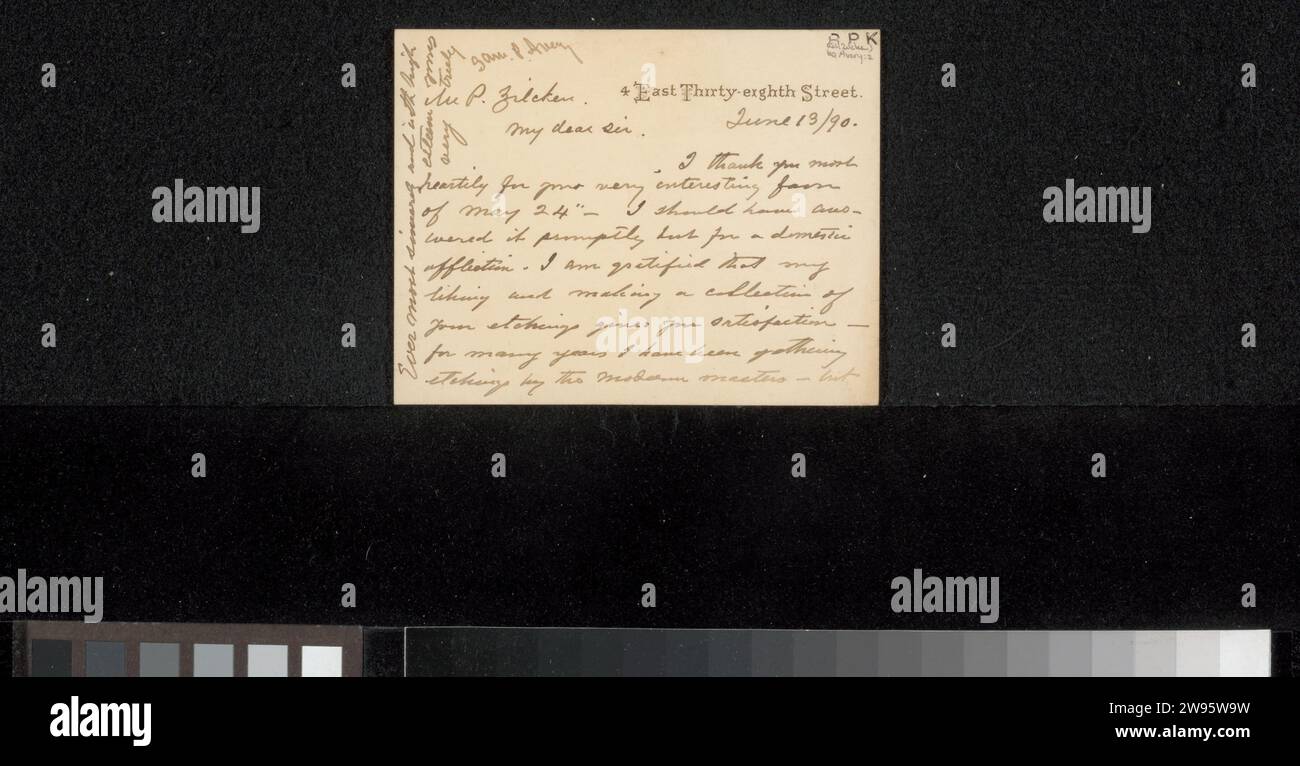 4 East Thirty-eighth Street.
June 13/90.
Mr P. Zilcken.
My dear sir.
I thank you most
heartily for your very interesting favor
of May 24" – I should have ans-
wered it promptly but for a domestic
affliction. I am gratified that my
liking and making a collection of
your etchings gives you satisfaction –
for many years I have been gathering
etchings by the modern masters – but
Ever most sincerely and with high
esteem yours
very truly
Sam. P. Avery
R P K
Avery:2
alamy
alamy
alamy
alamy
alamy
Image ID: 2W95W9W
www.alamy.com